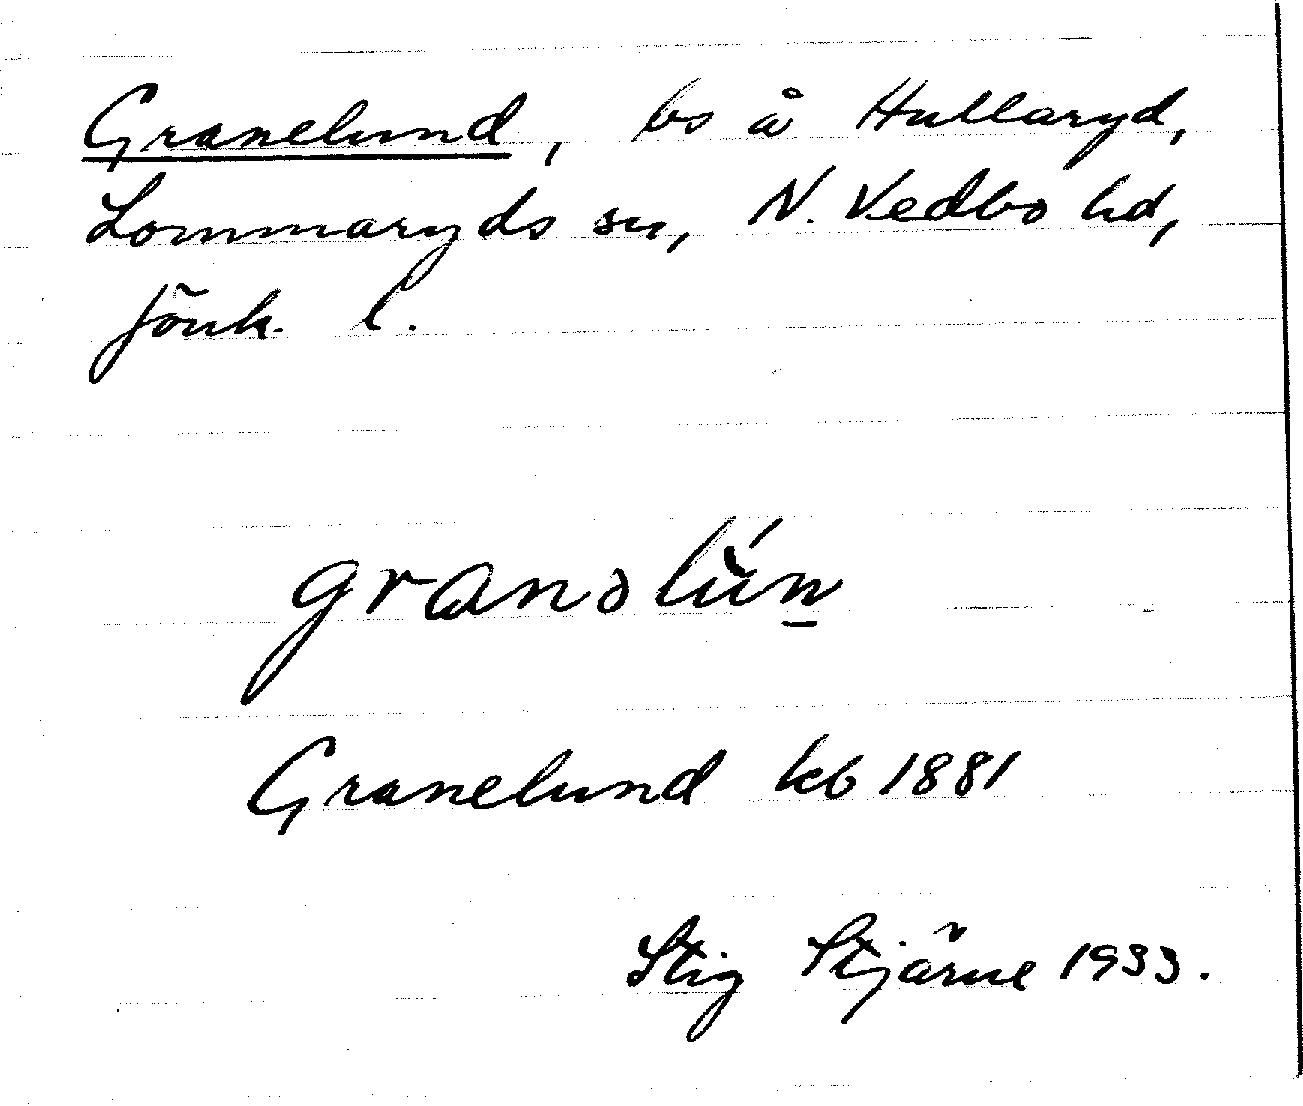 Granelund, bs å Hullaryd,
Lommaryds sn, N. Vedbo hd,
Jönk. l.
granəlún
Granelund kb 1881
Stig Stjärne 1933.